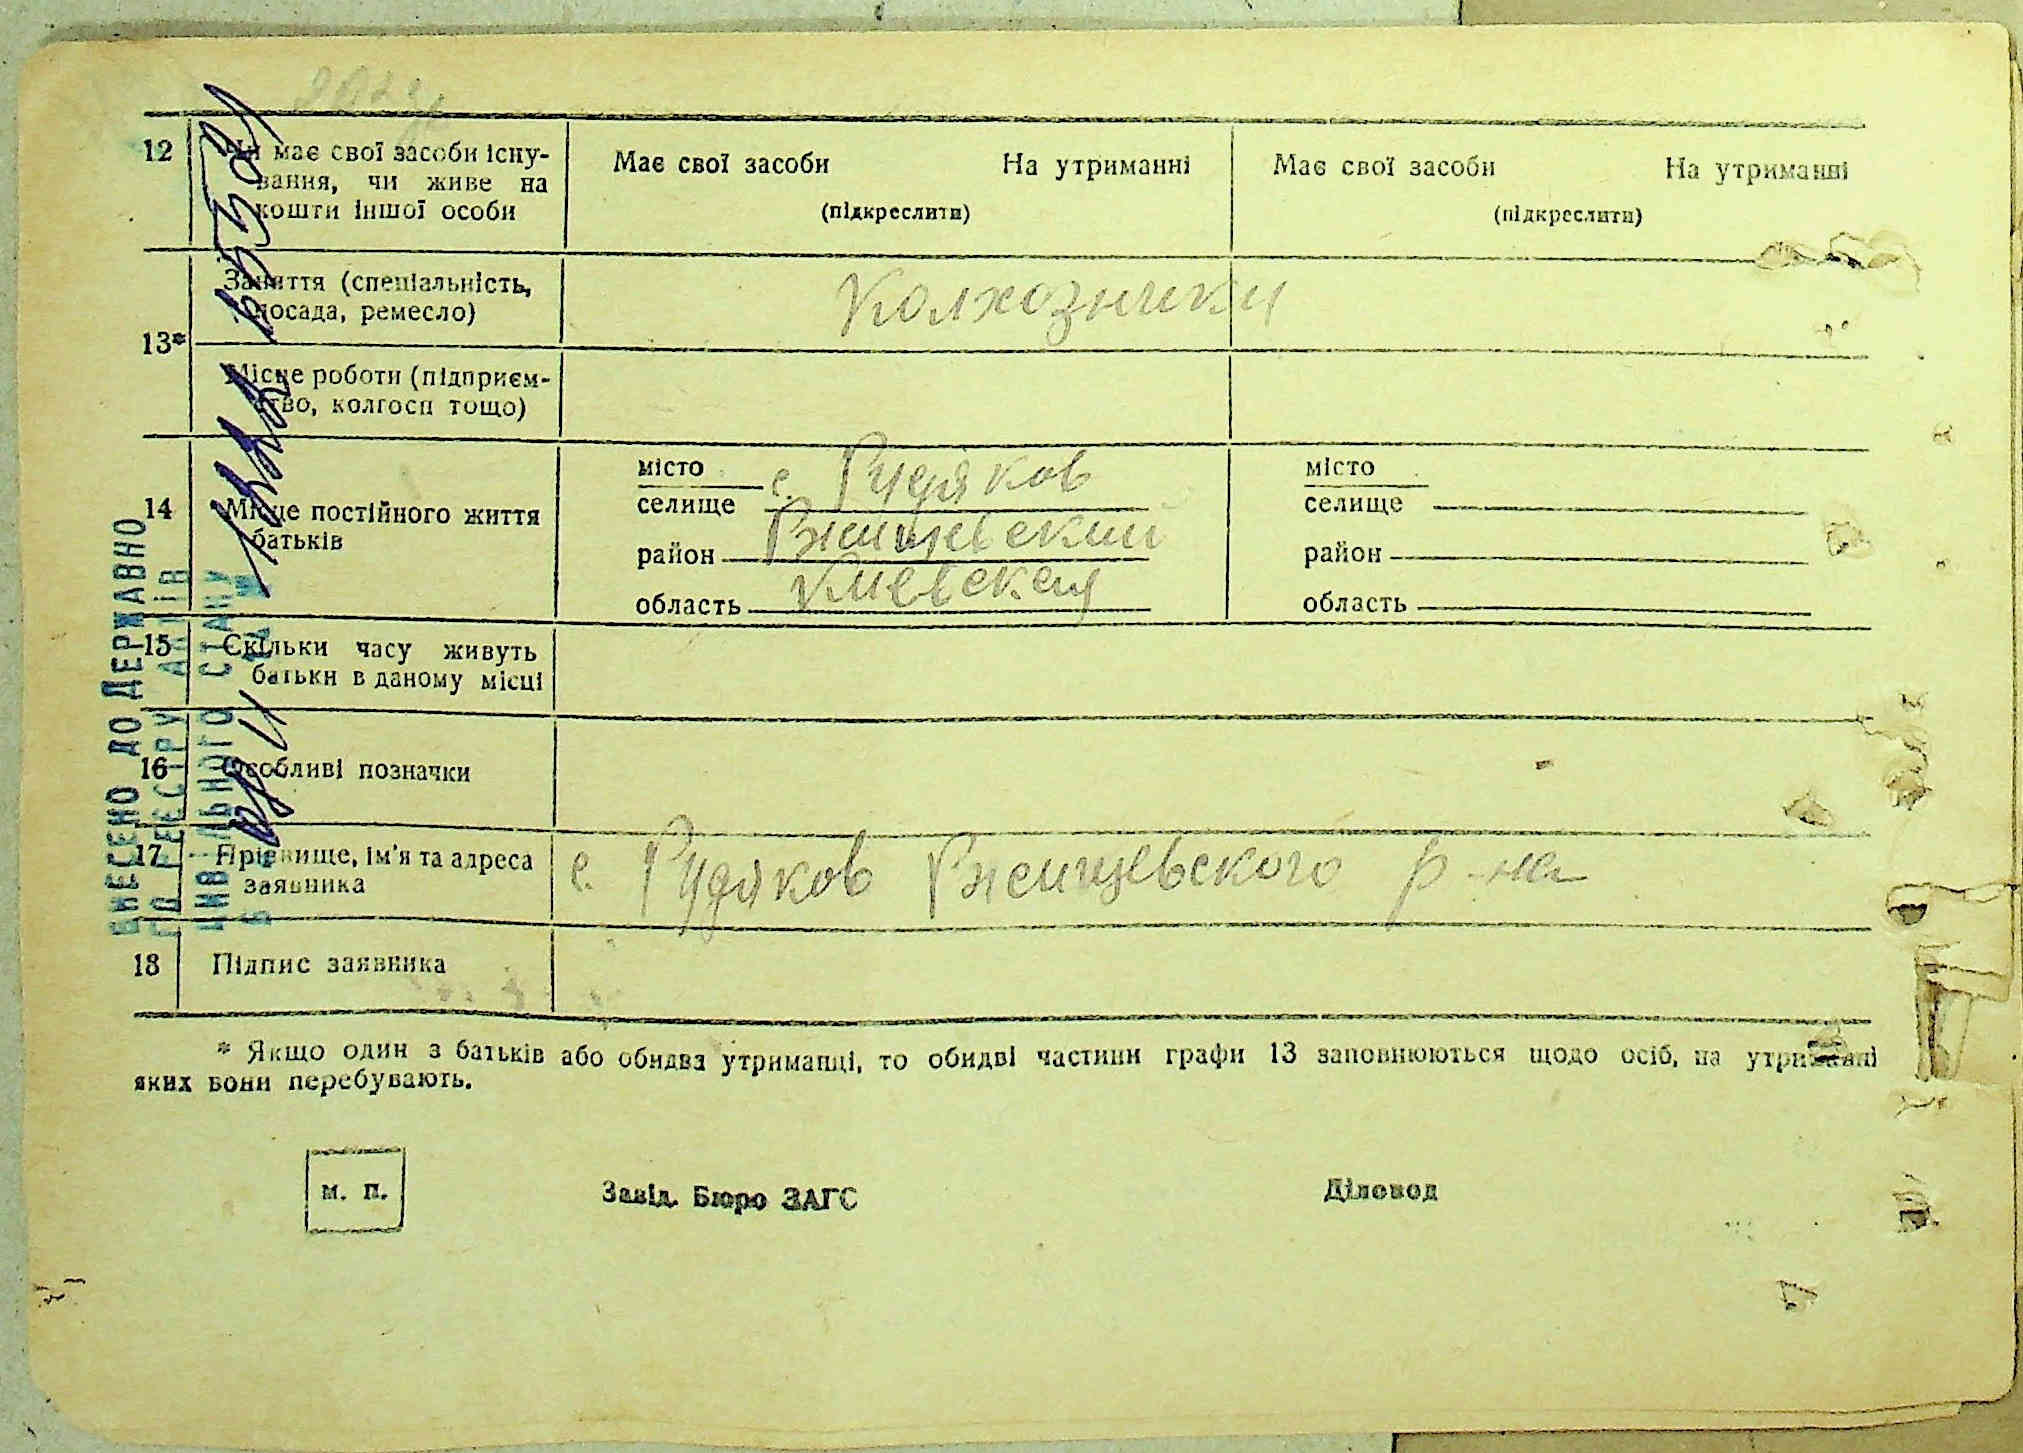 12 Чи має свої засоби існу-
вання, чи живе на
кошти іншої особи
Має свої засоби На утриманні
(підкреслити)
Має свої засоби На утриманні
(підкреслити)
13*
Заняття (спеціальність,
посада, ремесло)
Колхозники
Місце роботи (підприєм-
ство, колгосп тощо)
14 Місце постійного життя
батьків
місто
селище с. Рудяков
район Ржищевский
область Киевская
місто
селище
район
область
15 Скільки часу живуть
батьки в даному місці
16 Особливі позначки
17 Прізвище, ім'я та адреса
заявника
с. Рудяков Ржищевского р-на
18 Підпис заявника
* Якщо один з батьків або обидва утриманці, то обидві частини графи 13 заповнюються щодо осіб, на утриманні
яких вони перебувають.
м. п.
Завід. Бюро ЗАГС
Діловод
ВНЕСЕНО ДО ДЕРЖАВНО
ГО РЕЄСТРУ АКТІВ
ЦИВІЛЬНОГО СТАНУ